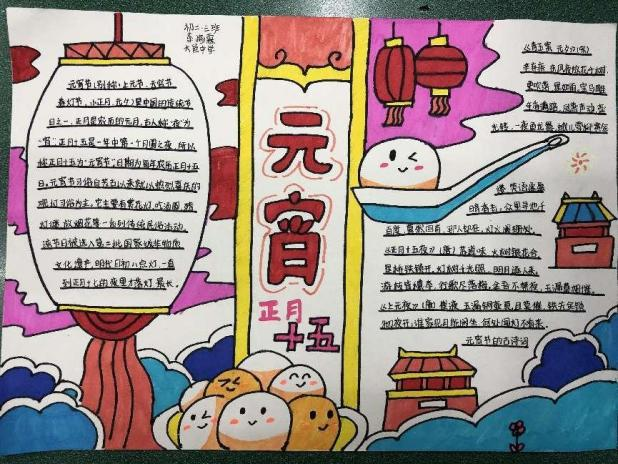 初二·三班
大臣中学
元宵节(别称:上元节、
春灯节、小正月、元夕)是中国的传统节
日之一,正月是农历的元月,古人称"夜"为
"宵",正月十五是一年中第一个月圆之夜,所以
称正月十五为"元宵节",日期为每年农历正月十五
日。元宵节习俗自古以来就以热烈喜庆的
观灯习俗为主,主要有赏花灯、吃汤圆、猜
灯谜、放烟花等一系列传统民俗活动。
该节日被选入第二批国家级非物质
文化遗产。明代日初八点灯,一直
到正月十七的夜里才落灯,最长。
元宵
正月
十五
《青玉案·元夕》(宋)
辛弃疾 东风夜放花千树,
更吹落,星如雨,宝马雕
车香满路,凤箫声动,壶
光转,一夜鱼龙舞。蛾儿雪柳黄金
缕,笑语盈盈
暗香去,众里寻他千
百度,蓦然回首,那人却在,灯火阑珊处。
《正月十五夜》(唐)苏道味 火树银花合,
星桥铁锁开,灯树千光照,明月逐人来,
游妓皆秾李,行歌尽落梅,金吾不禁夜,玉漏莫相催。
《上元夜》(唐)崔液 玉漏铜壶且莫催,铁关金锁
彻夜开,谁家见月能闲坐,何处闻灯不看来。
元宵节的古诗词